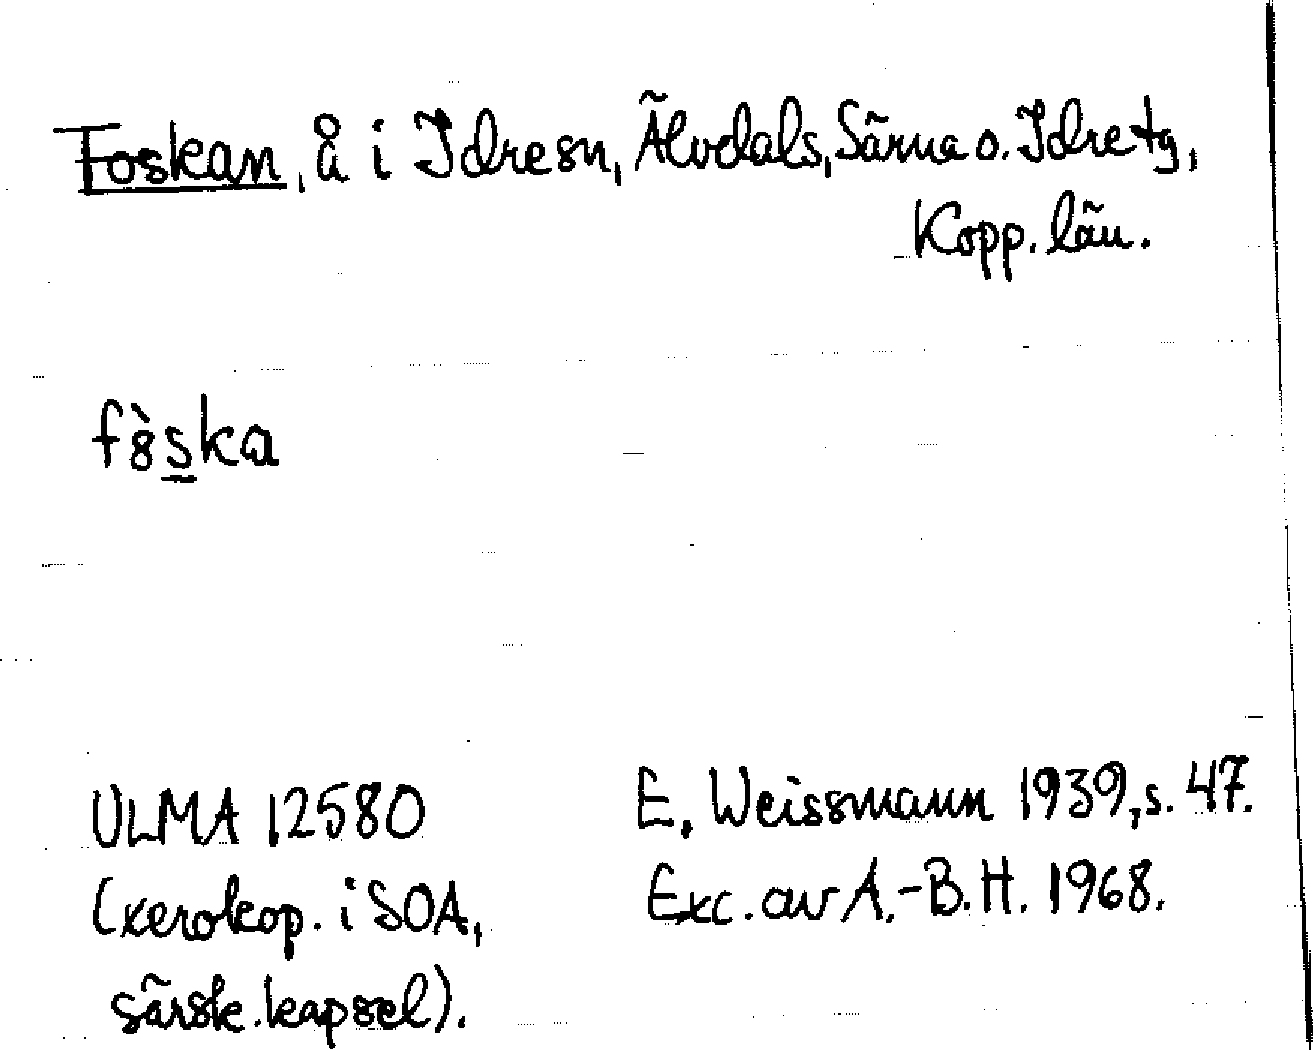 Foskan, å i Idresn, Älvdals, Särna o. Idre tg,
Kopp. län.
fo᷅̀s̲ka
ULMA 12580
(xerokop. i SOA,
särsk. kapsel).
E. Weissmann 1939, s. 47.
Exc. av A.-B.H. 1968.